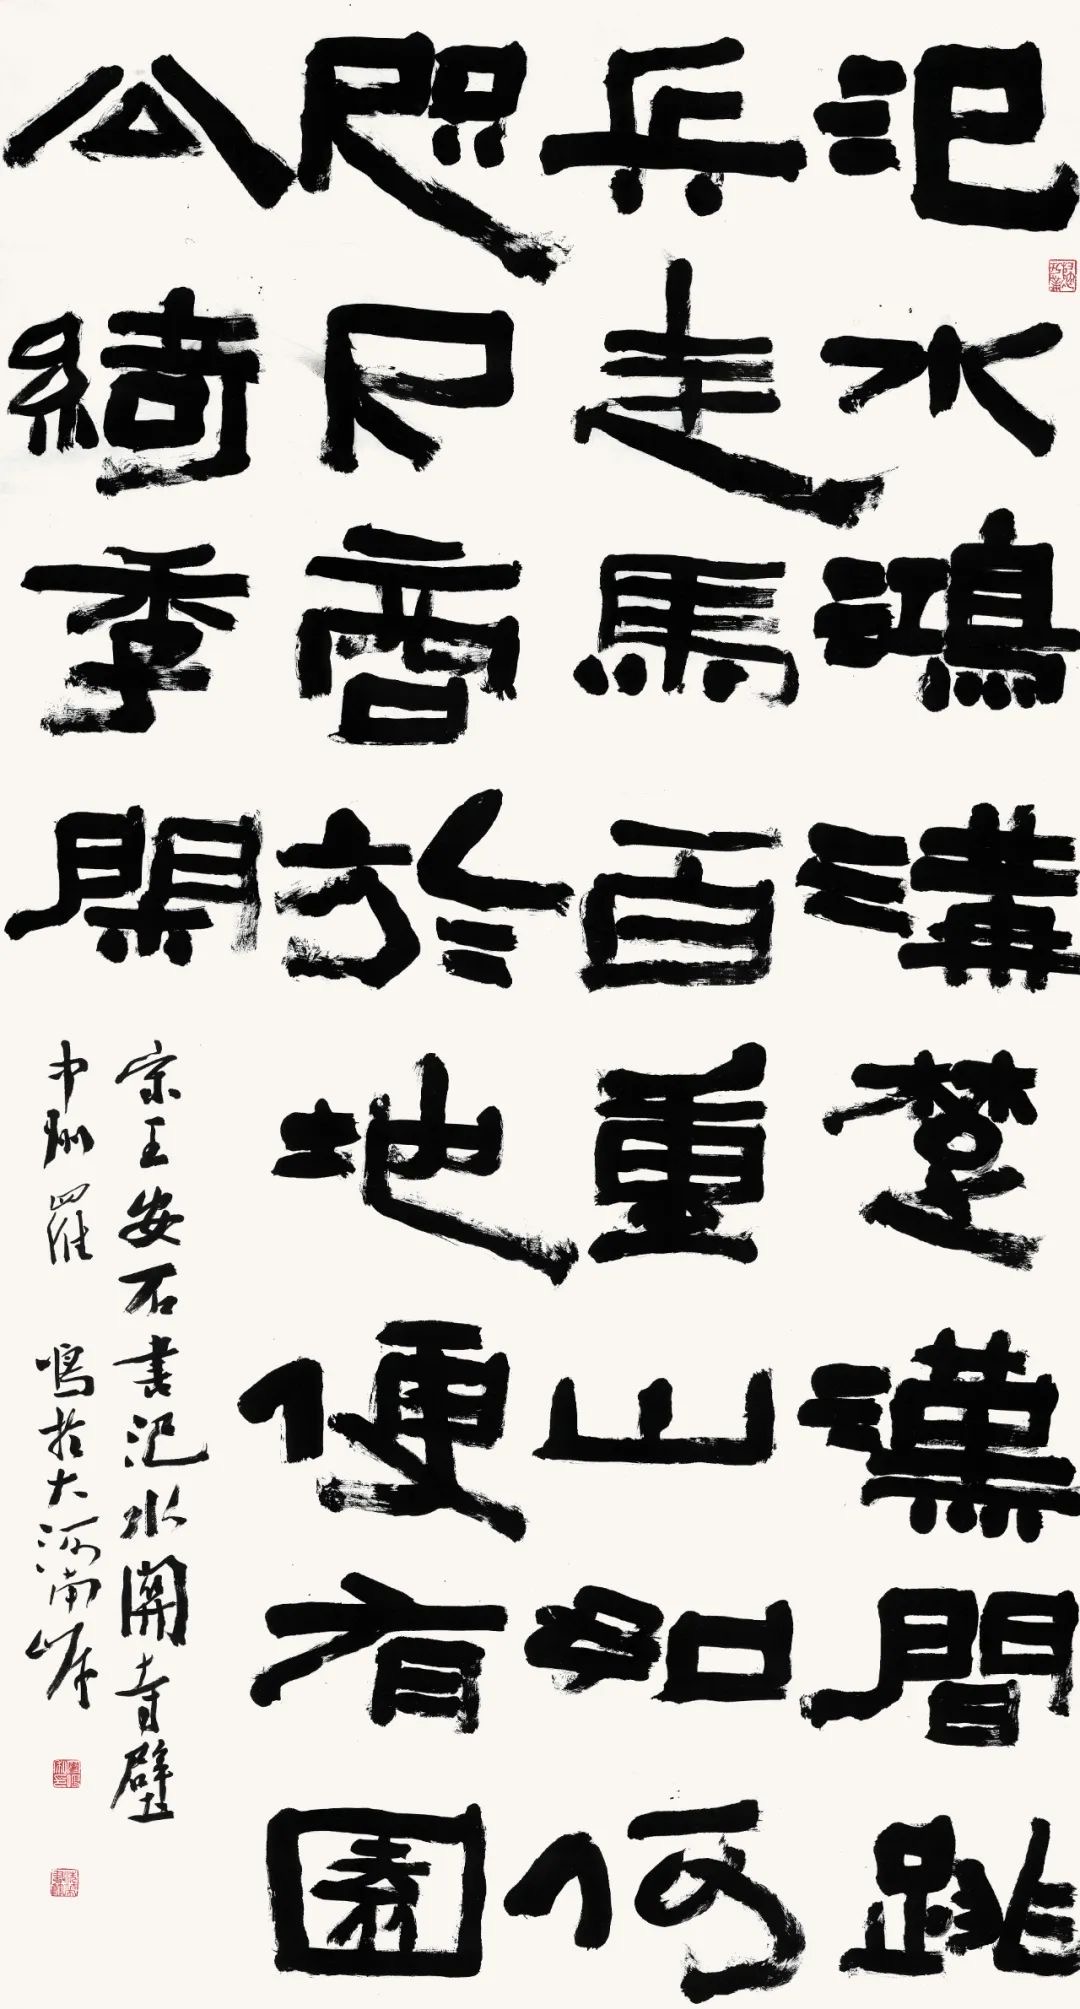 汜水鴻溝楚漢間跳
兵走馬百重山如何
咫尺商於地便有園
公綺季閑
宋王安石書汜水關寺壁
中州羅鳴於大河南岸